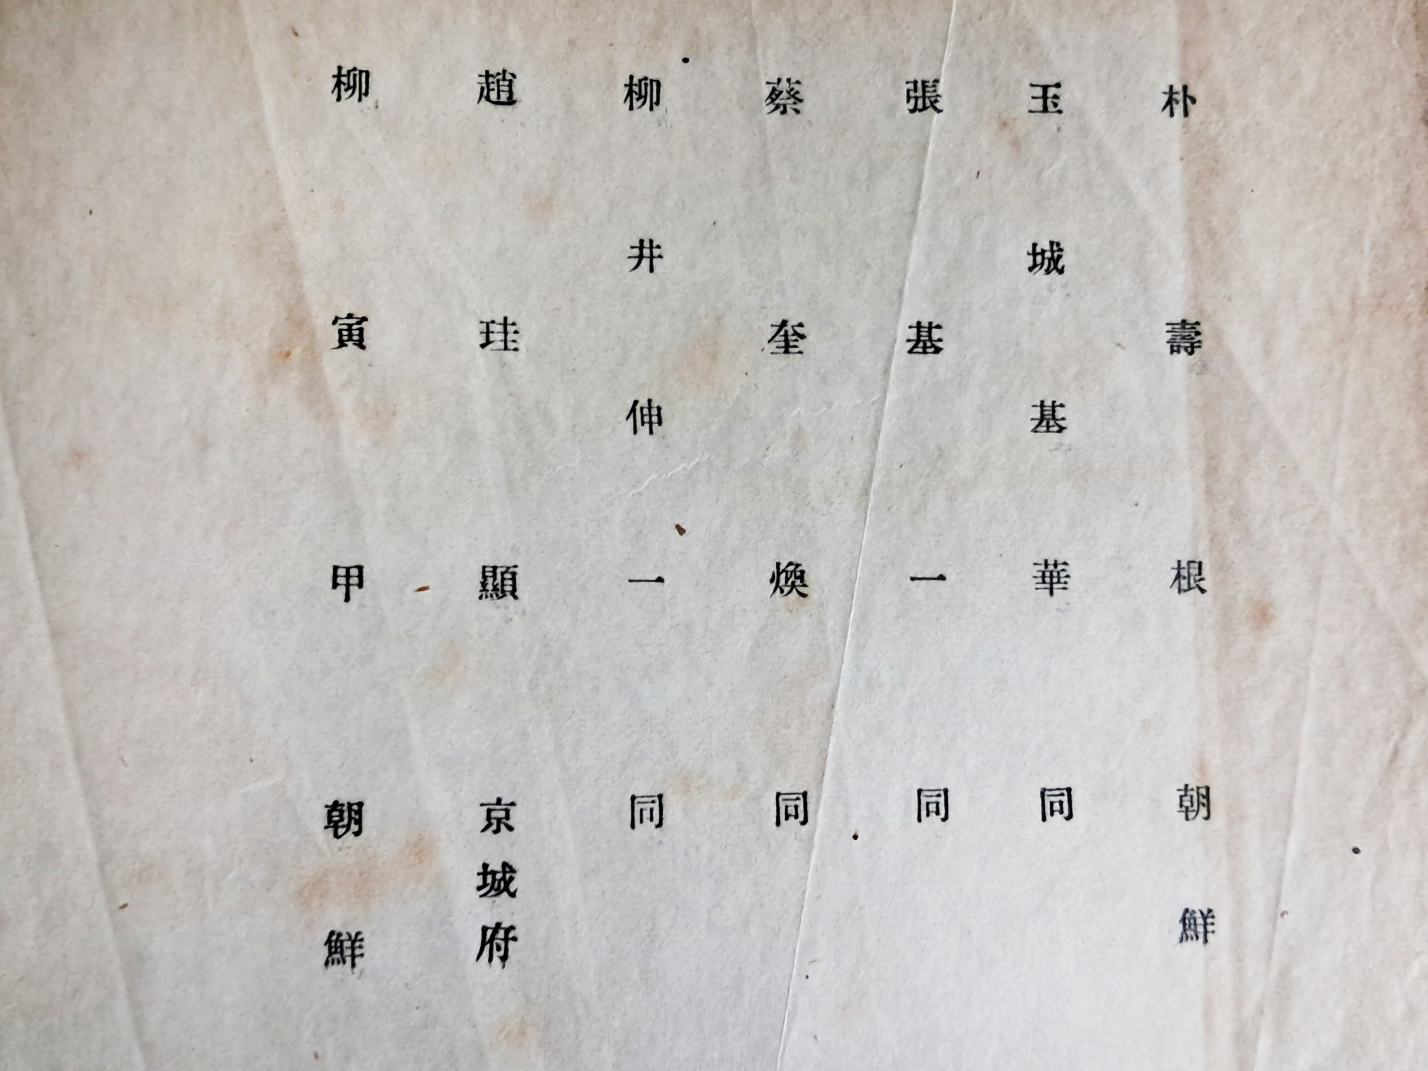 朴壽根 朝鮮
玉城基華 同
張基一 同
蔡奎煥 同
柳井伸一 同
趙珪顯 京城府
柳寅甲 朝鮮